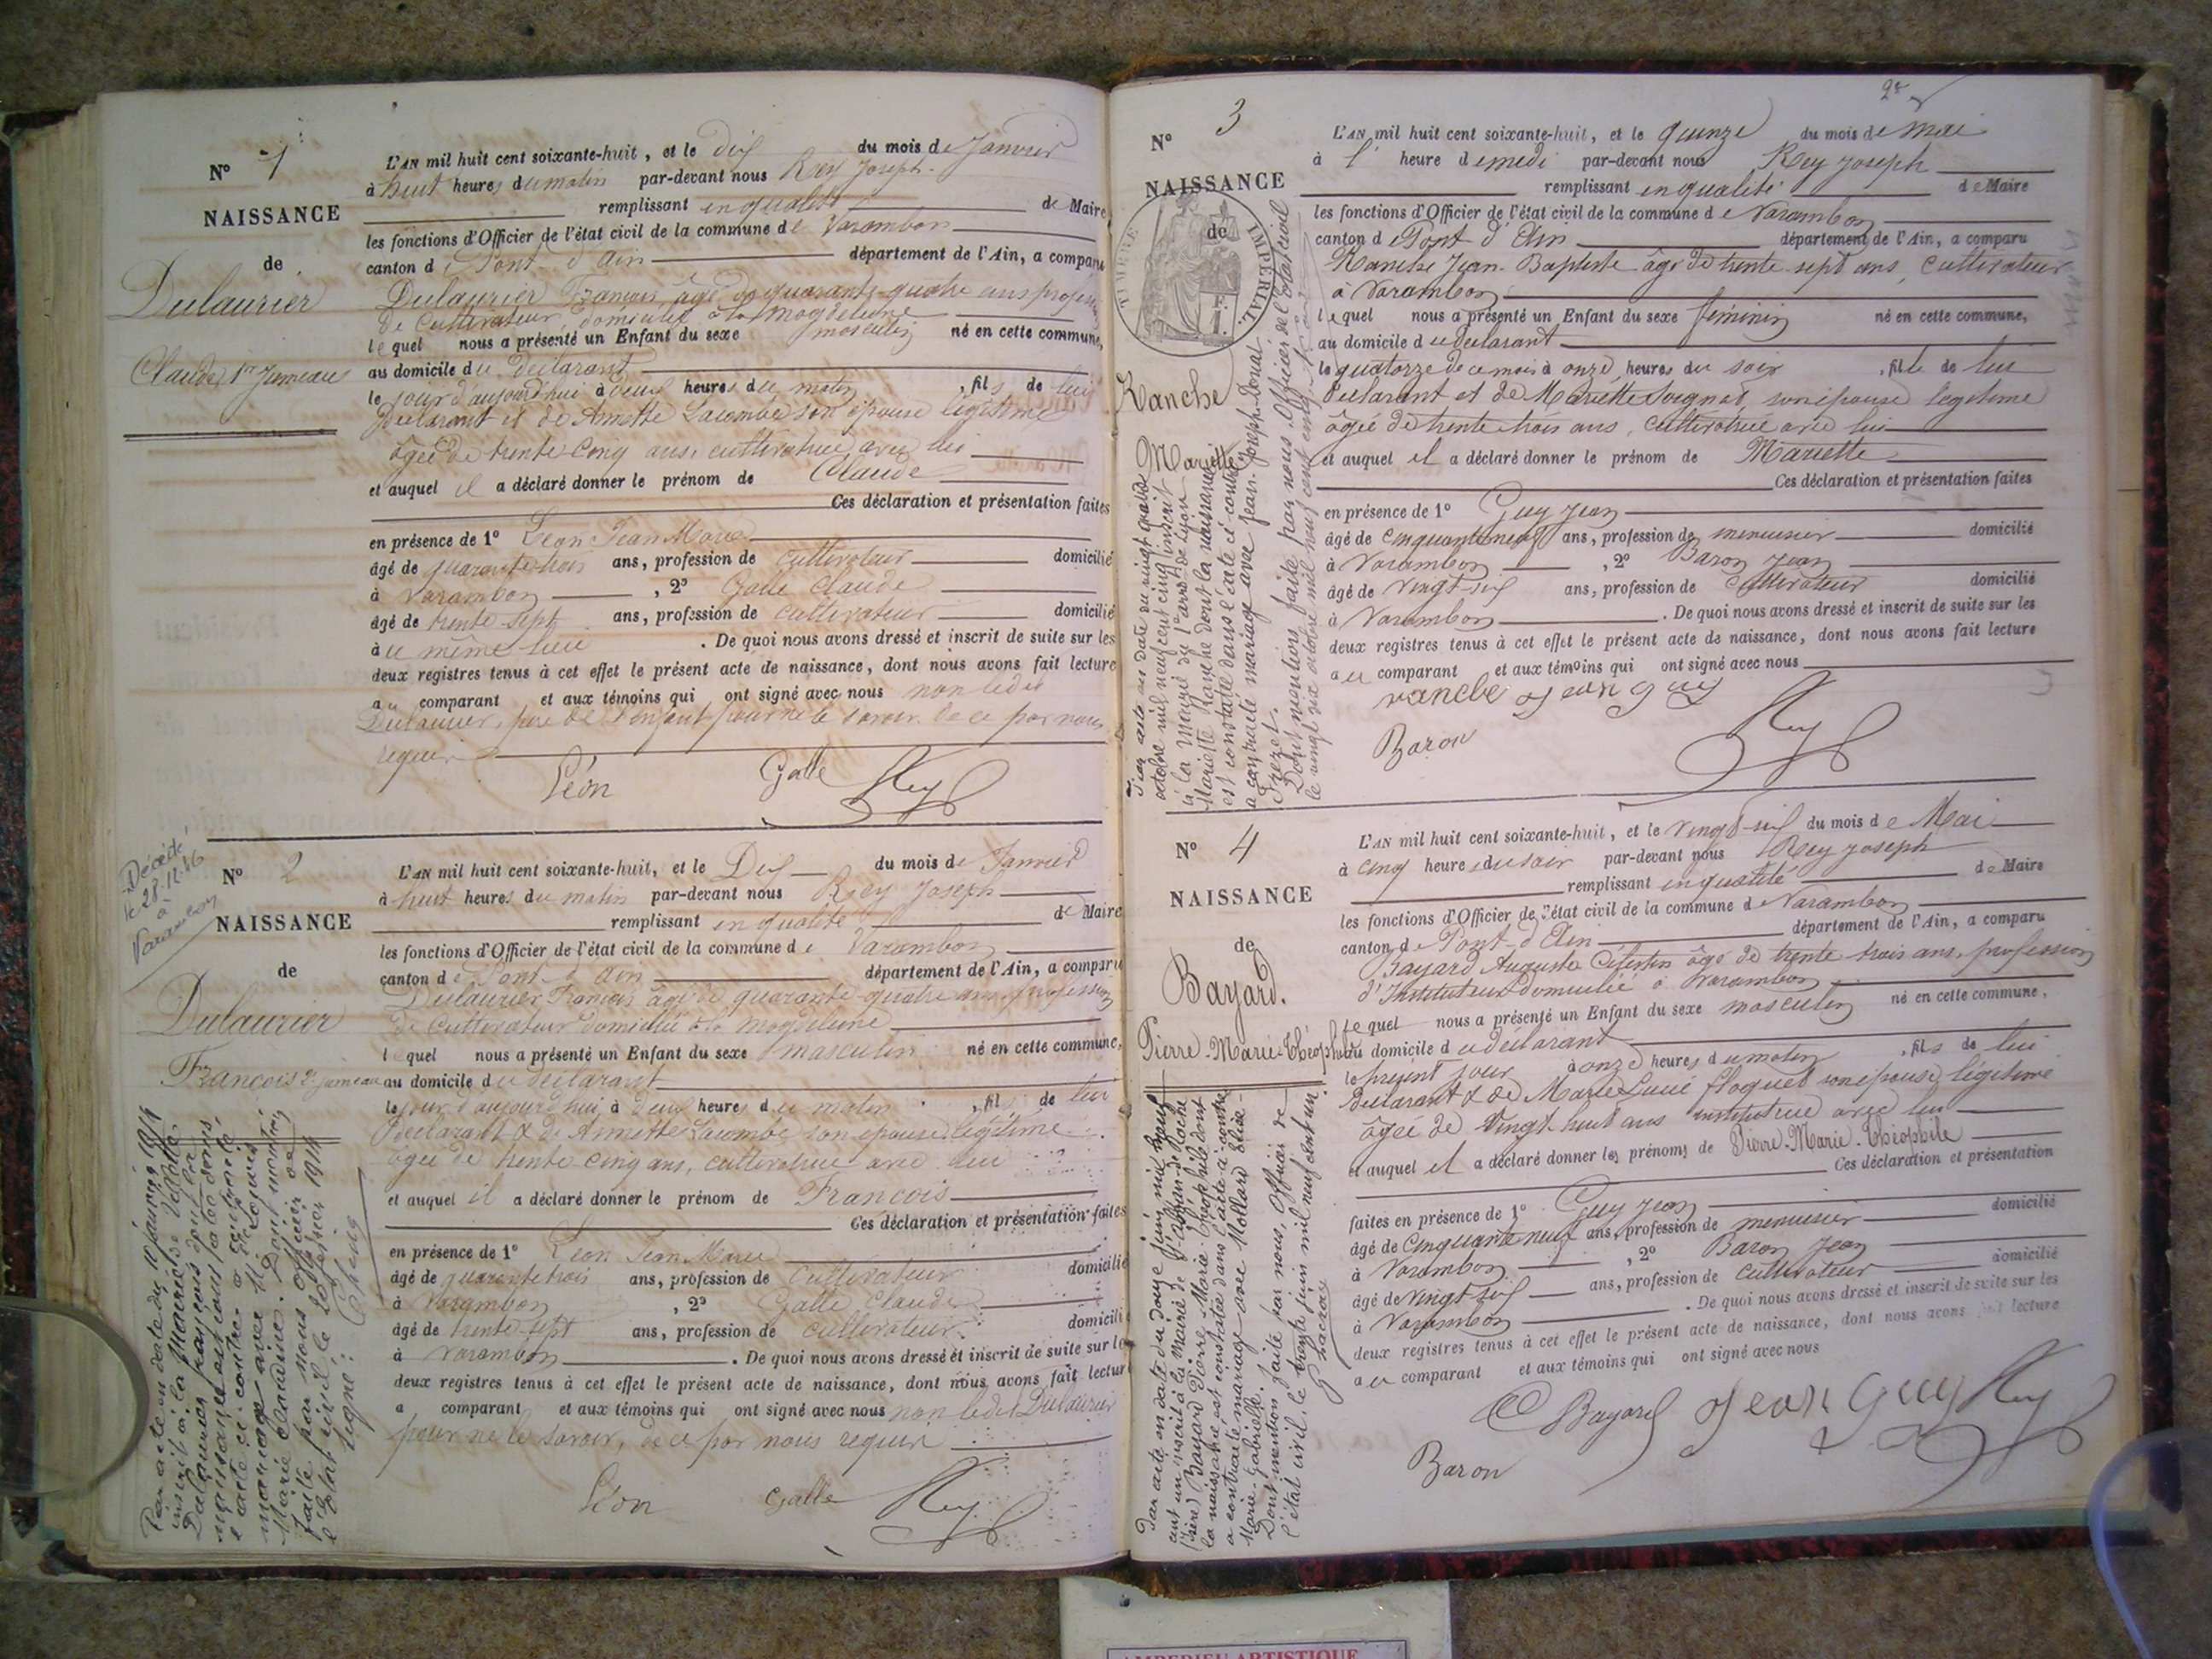 N° 1
NAISSANCE
de
Dulaurier
Claude, 1er Jumeau
L'AN mil huit cent soixante-huit, et le dix du mois de Janvier
à huit heures du matin par-devant nous Rey Joseph
remplissant en qualité de Maire
les fonctions d'Officier de l'état civil de la commune de Varambon
canton de Pont d'ain département de l'Ain, a comparu
Dulaurier François âgé de quarante-quatre ans profession
de Cultivateur, domicilié à la Magdeleine
lequel nous a présenté un Enfant du sexe masculin né en cette commune,
au domicile du déclarant
le jour d'aujourd'hui à deux heures du matin, fils de lui
Déclarant et de Annette Lacombe son épouse légitime
âgée de trente cinq ans, cultivatrice avec lui
et auquel il a déclaré donner le prénom de Claude
Ces déclaration et présentation faites
en présence de 1° Léon Jean Marie
âgé de quarante trois ans, profession de cultivateur domicilié
à Varambon, 2° Galle Claude
âgé de trente-sept ans, profession de cultivateur domicilié
au même lieu. De quoi nous avons dressé et inscrit de suite sur les
deux registres tenus à cet effet le présent acte de naissance, dont nous avons fait lecture
au comparant et aux témoins qui ont signé avec nous non ledit
Dulaurier, père de l'enfant pour ne le savoir de ce par nous
requis
Léon Galle Rey
Décédé
le 28.12.46
à
Varambon
N° 2
NAISSANCE
de
Dulaurier
François 2e jumeau
L'AN mil huit cent soixante-huit, et le Dix du mois de Janvier
à huit heures du matin par-devant nous Rey Joseph
remplissant en qualité de Maire
les fonctions d'Officier de l'état civil de la commune de Varambon
canton de Pont-d'ain département de l'Ain, a comparu
Dulaurier François âgé de quarante-quatre ans, profession
de Cultivateur domicilié à la Magdeleine
lequel nous a présenté un Enfant du sexe masculin né en cette commune,
au domicile du déclarant
le jour d'aujourd'hui à deux heures du matin, fils de lui
Déclarant & de Annette Lacombe son épouse légitime
âgée de trente cinq ans, cultivatrice avec lui
et auquel il a déclaré donner le prénom de François
Ces déclaration et présentation faites
en présence de 1° Léon Jean Marie
âgé de quarante trois ans, profession de Cultivateur domicilié
à Varambon, 2° Galle Claude
âgé de trente-sept ans, profession de cultivateur domicilié
à Varambon. De quoi nous avons dressé et inscrit de suite sur les
deux registres tenus à cet effet le présent acte de naissance, dont nous avons fait lecture
a comparant et aux témoins qui ont signé avec nous non ledit Dulaurier
pour ne le savoir, de ce par nous requis
Léon Galle Rey
Par acte en date du 10 janvier 1914
inscrit à la Mairie de
Dulaurier François dont la
naissance est constatée dans
l'acte ci-contre a contracté
mariage avec
Marie Claudine. Dont mention
faite par nous Officier de
l'État civil le 1914
Signé:
2e
N° 3
NAISSANCE
de
TIMBRE IMPERIAL
Ranche
Mariette
L'AN mil huit cent soixante-huit, et le quinze du mois de mai
à l' heure de midi par-devant nous Rey Joseph
remplissant en qualité de Maire
les fonctions d'Officier de l'état civil de la commune de Varambon
canton de Pont d'Ain département de l'Ain, a comparu
Ranche Jean-Baptiste âgé de trente-sept ans, cultivateur
à Varambon
lequel nous a présenté un Enfant du sexe féminin né en cette commune,
au domicile du déclarant
le quatorze de ce mois à onze heures du soir, fille de lui
Déclarant et de Mariette Soignat, son épouse légitime
âgée de trente trois ans, cultivatrice avec lui
et auquel il a déclaré donner le prénom de Mariette
Ces déclaration et présentation faites
en présence de 1° Guy Jean
âgé de Cinquante neuf ans, profession de menuisier domicilié
à Varambon, 2° Baron Jean
âgé de vingt-six ans, profession de Cultivateur domicilié
à Varambon. De quoi nous avons dressé et inscrit de suite sur les
deux registres tenus à cet effet le présent acte de naissance, dont nous avons fait lecture
au comparant et aux témoins qui ont signé avec nous
ranche Jean guy
Baron Rey
Par acte en date du vingt quatre
octobre mil neuf cent cinq inscrit
à la Mairie du 1er arrt de Lyon
Mariette Ranche dont la naissance
est constatée dans l'acte ci-contre
a contracté mariage avec Jean-Joseph-Donat
Frezet.
Dont mention faite par nous, Officier de l'état civil
le vingt six octobre mil neuf cent cinq
N° 4
NAISSANCE
de
Bayard.
Pierre-Marie-Théophile
L'AN mil huit cent soixante-huit, et le vingt-six du mois de Mai
à cinq heures du soir par-devant nous Rey Joseph
remplissant en qualité de Maire
les fonctions d'Officier de l'état civil de la commune de Varambon
canton de Pont-d'Ain département de l'Ain, a comparu
Bayard Auguste Célestin âgé de trente trois ans, profession
d'Instituteur domicilié à Varambon
lequel nous a présenté un Enfant du sexe masculin né en cette commune,
au domicile du déclarant
le présent jour à onze heures du matin, fils de lui
Déclarant & de Marie Lucie Floquet son épouse légitime
âgée de vingt-huit ans institutrice avec lui
et auquel il a déclaré donner les prénoms de Pierre-Marie-Théophile
Ces déclaration et présentation
faites en présence de 1° Guy Jean domicilié
âgé de Cinquante neuf ans, profession de menuisier
à Varambon, 2° Baron Jean domicilié
âgé de vingt six ans, profession de cultivateur
à Varambon. De quoi nous avons dressé et inscrit de suite sur les
deux registres tenus à cet effet le présent acte de naissance, dont nous avons fait lecture
au comparant et aux témoins qui ont signé avec nous
C Bayard Jean Guy Rey
Baron
Par acte en date du douze juin mil neuf
cent un inscrit à la Mairie de
(Isère) Bayard Pierre-Marie-Théophile dont
la naissance est constatée dans l'acte ci-contre
a contracté mariage avec Mollard Elise-
Marie-Gabrielle.
Dont mention faite par nous, Officier de
l'état civil, le trente juin mil neuf cent un.
AMPERIEU ARTISTIQUE